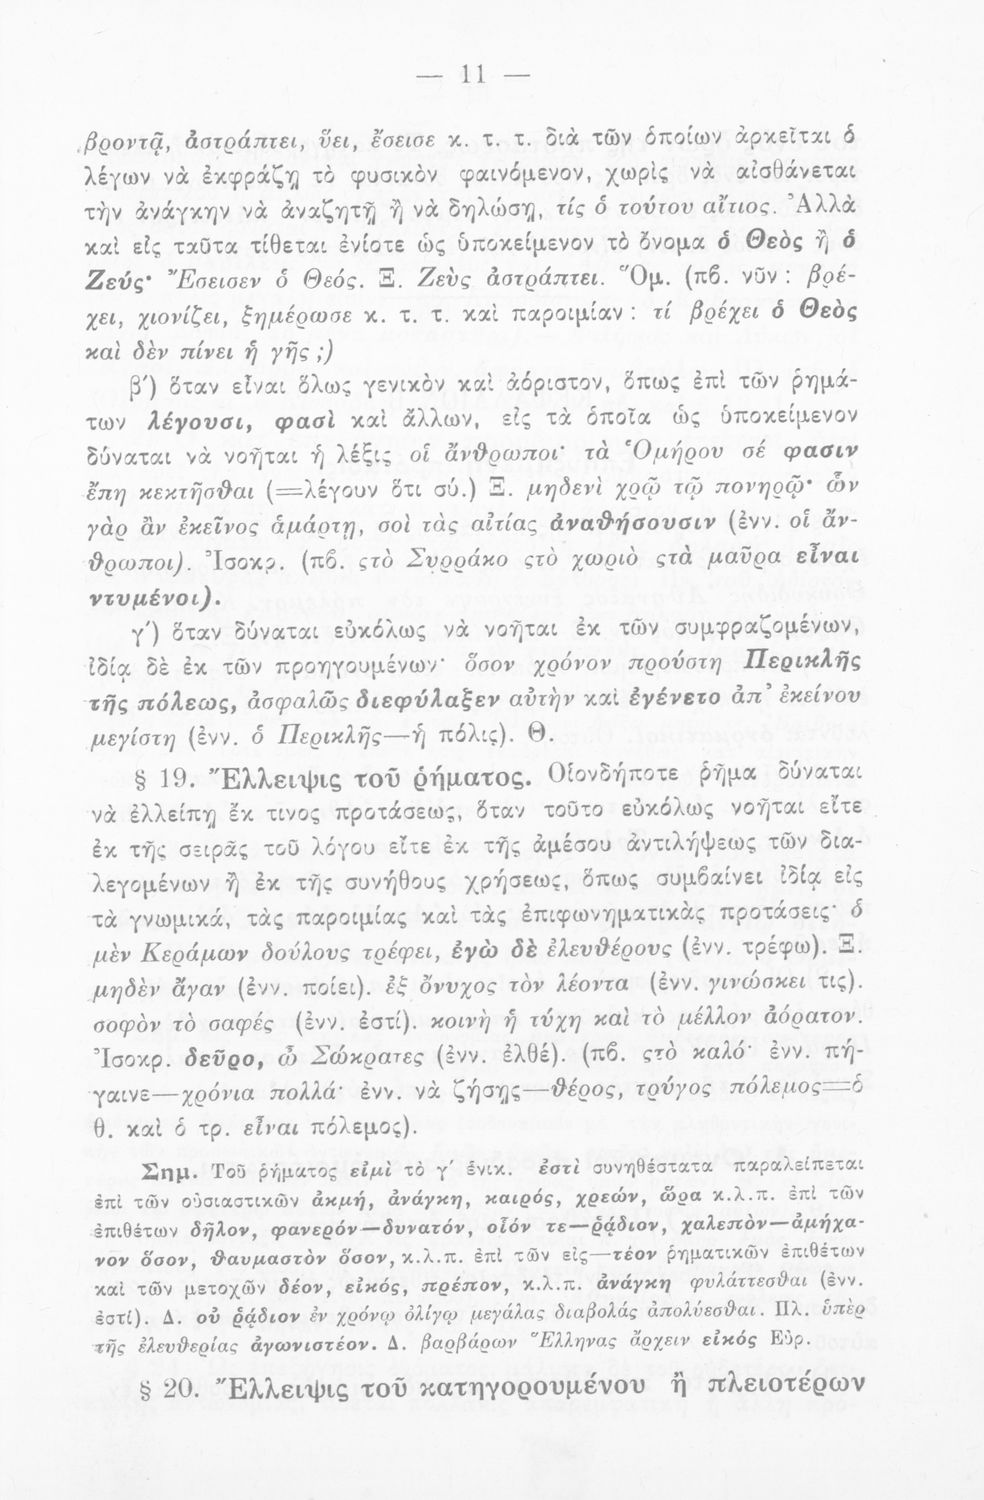 — 11 —
βροντᾷ, ἀστράπτει, ὕει, ἔσεισε κ. τ. τ. διὰ τῶν ὁποίων ἀρκεῖται ὁ
λέγων νὰ ἐκφράζῃ τὸ φυσικὸν φαινόμενον, χωρὶς νὰ αἰσθάνεται
τὴν ἀνάγκην νὰ ἀναζητῇ ἢ νὰ δηλώσῃ, τίς ὁ τούτου αἴτιος. Ἀλλὰ
καὶ εἰς ταῦτα τίθεται ἐνίοτε ὡς ὑποκείμενον τὸ ὄνομα ὁ Θεὸς ἢ ὁ
Ζεύς· Ἔσεισεν ὁ Θεός. Ξ. Ζεὺς ἀστράπτει. Ὅμ. (πϐ. νῦν : βρέ-
χει, χιονίζει, ξημέρωσε κ. τ. τ. καὶ παροιμίαν : τί βρέχει ὁ Θεὸς
καὶ δὲν πίνει ἡ γῆς ;)
β′) ὅταν εἶναι ὅλως γενικὸν καὶ ἀόριστον, ὅπως ἐπὶ τῶν ῥημά-
των λέγουσι, φασὶ καὶ ἄλλων, εἰς τὰ ὁποῖα ὡς ὑποκείμενον
δύναται νὰ νοῆται ἡ λέξις οἱ ἄνθρωποι· τὰ Ὁμήρου σέ φασιν
ἔπη κεκτῆσθαι (=λέγουν ὅτι σύ.) Ξ. μηδενὶ χρῶ τῷ πονηρῷ· ὧν
γὰρ ἂν ἐκεῖνος ἁμάρτῃ, σοὶ τὰς αἰτίας ἀναθήσουσιν (ἐνν. οἱ ἄν-
θρωποι). Ἰσοκρ. (πϐ. ςτὸ Συρράκο ςτὸ χωριὸ ςτὰ μαῦρα εἶναι
ντυμένοι).
γ′) ὅταν δύναται εὐκόλως νὰ νοῆται ἐκ τῶν συμφραζομένων,
ἰδίᾳ δὲ ἐκ τῶν προηγουμένων· ὅσον χρόνον προύστη Περικλῆς
τῆς πόλεως, ἀσφαλῶς διεφύλαξεν αὐτὴν καὶ ἐγένετο ἀπ’ ἐκείνου
μεγίστη (ἐνν. ὁ Περικλῆς—ἡ πόλις). Θ.
§ 19. Ἔλλειψις τοῦ ῥήματος. Οἱονδήποτε ῥῆμα δύναται
νὰ ἐλλείπῃ ἔκ τινος προτάσεως, ὅταν τοῦτο εὐκόλως νοῆται εἴτε
ἐκ τῆς σειρᾶς τοῦ λόγου εἴτε ἐκ τῆς ἀμέσου ἀντιλήψεως τῶν δια-
λεγομένων ἢ ἐκ τῆς συνήθους χρήσεως, ὅπως συμϐαίνει ἰδίᾳ εἰς
τὰ γνωμικά, τὰς παροιμίας καὶ τὰς ἐπιφωνηματικὰς προτάσεις· ὁ
μὲν Κεράμων δούλους τρέφει, ἐγὼ δὲ ἐλευθέρους (ἐνν. τρέφω). Ξ.
μηδὲν ἄγαν (ἐνν. ποίει). ἐξ ὄνυχος τὸν λέοντα (ἐνν. γινώσκει τις).
σοφὸν τὸ σαφές (ἐνν. ἐστί). κοινὴ ἡ τύχη καὶ τὸ μέλλον ἀόρατον.
Ἰσοκρ. δεῦρο, ὦ Σώκρατες (ἐνν. ἐλθέ). (πϐ. ςτὸ καλό· ἐνν. πή-
γαινε—χρόνια πολλά· ἐνν. νὰ ζήσῃς—θέρος, τρύγος πόλεμος=ὁ
θ. καὶ ὁ τρ. εἶναι πόλεμος).
Σημ. Τοῦ ῥήματος εἰμὶ τὸ γ′ ἑνικ. ἐστὶ συνηθέστατα παραλείπεται
ἐπὶ τῶν οὐσιαστικῶν ἀκμή, ἀνάγκη, καιρός, χρεών, ὥρα κ.λ.π. ἐπὶ τῶν
ἐπιθέτων δῆλον, φανερόν—δυνατόν, οἷόν τε—ῥᾴδιον, χαλεπὸν—ἀμήχα-
νον ὅσον, θαυμαστὸν ὅσον, κ.λ.π. ἐπὶ τῶν εἰς—τέον ῥηματικῶν ἐπιθέτων
καὶ τῶν μετοχῶν δέον, εἰκός, πρέπον, κ.λ.π. ἀνάγκη φυλάττεσθαι (ἐνν.
ἐστί). Δ. οὐ ῥᾴδιον ἐν χρόνῳ ὀλίγῳ μεγάλας διαβολάς ἀπολύεσθαι. Πλ. ὑπὲρ
τῆς ἐλευθερίας ἀγωνιστέον. Δ. βαρβάρων Ἕλληνας ἄρχειν εἰκός Εὐρ.
§ 20. Ἔλλειψις τοῦ κατηγορουμένου ἢ πλειοτέρων